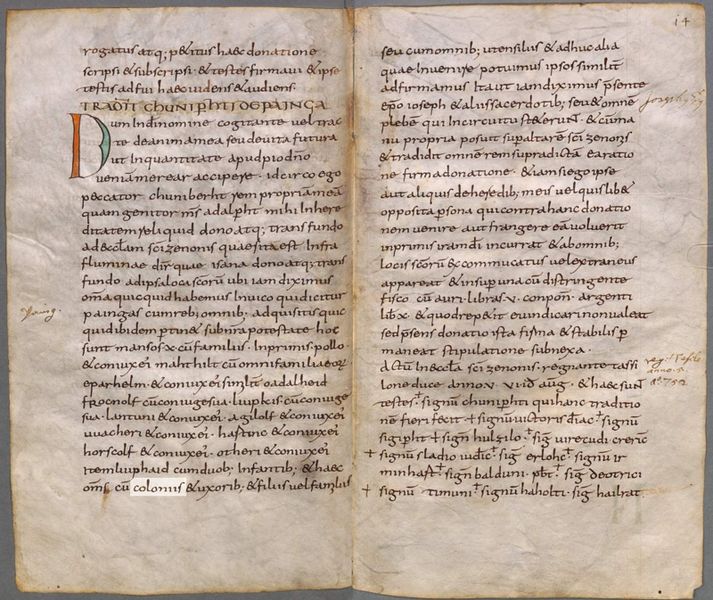 rogatus atq; petitus haec donatione
scripsi & subscripsi & testes firmavi & ipse
testis adfui haec videns & audiens.
TRADITI CHUNIPHTI DE PAINGA
Dum In dei nomine cogitante vel trac
te de anima mea seu de vita futura
ut In quantitate apud pio dno
veniam merear accipere. idcirco ego
peccator chuniberht rem propria mea
quam genitor ms adalpht mihi In here
ditatem reliquid dono atq; trans fundo
ad ecclam sci zenonis quae sita est Infra
fluminae dir quae isana dono atq; trans
fundo ad ipsa loca scoru ubi iam diximus
oma quicquid habemus In vico qui dicitur
paingas cum reb; omnib; adquisitis quic
quid ibidem ptin& sub nra potestate hoc
sunt mansos x cu familiis. Inprimis pollo
& coniux ei mahthilt cu omni familia eor
eparhelm & coniux ei simlt oadalheid
frocnolf cu coniuge sua liupkis cu coniuge
sua lantuni & coniux ei agilolf & coniux ei
uuacheri & coniux ei hastinc & coniux ei
horscolf & coniux ei otheri & coniux ei
Item liuphaid cum duob; Infantib; & haec
oms cu coloniis & uxorib; & filiis vel famulis
14
seu cum omnib; utensiliis & adhuc alia
quae Invenire potuimus ipsos similit
adfirmamus Ita ut iam diximus psente
epo ioseph & aliis sacerdotib; seu & omne
plebem qui In circuitu steterunt & cum a
nu propria posui supaltare sci zenonis
& tradidi omne rem supradicta ea ratio
ne firma donatione & iam si ego ipse
aut aliquis de heredib; meis vel quislib&
opposita psona qui contra hanc donatio
nem venire aut frangere ea voluerit
inprimis iram di incurrat & ab omnib;
locis scoru excommucatus vel extraneus
appareat & insup una cu distringente
fisco cu auri libras v conpon argenti
lib x & quod rep&it evindicari non valeat
sed psens donatio ista firma & stabilis p
maneat stipulatione subnexa.
Actu In eccla sci zenonis regnante tassi
lone duce anno v vi id aug & haec sunt
testes signum chunipthi qui hanc traditio
nem fieri fecit + signu victoris diac signu
sigipht + signu hulzilo sig virecudi cleric
+ signu sladio iudic sig erlohc signu ir
minhast sign balduni pbt sig deotrici
+ signu timuni signu haholti sig hailrat
Paing.
reg. Tassilo
anno 5